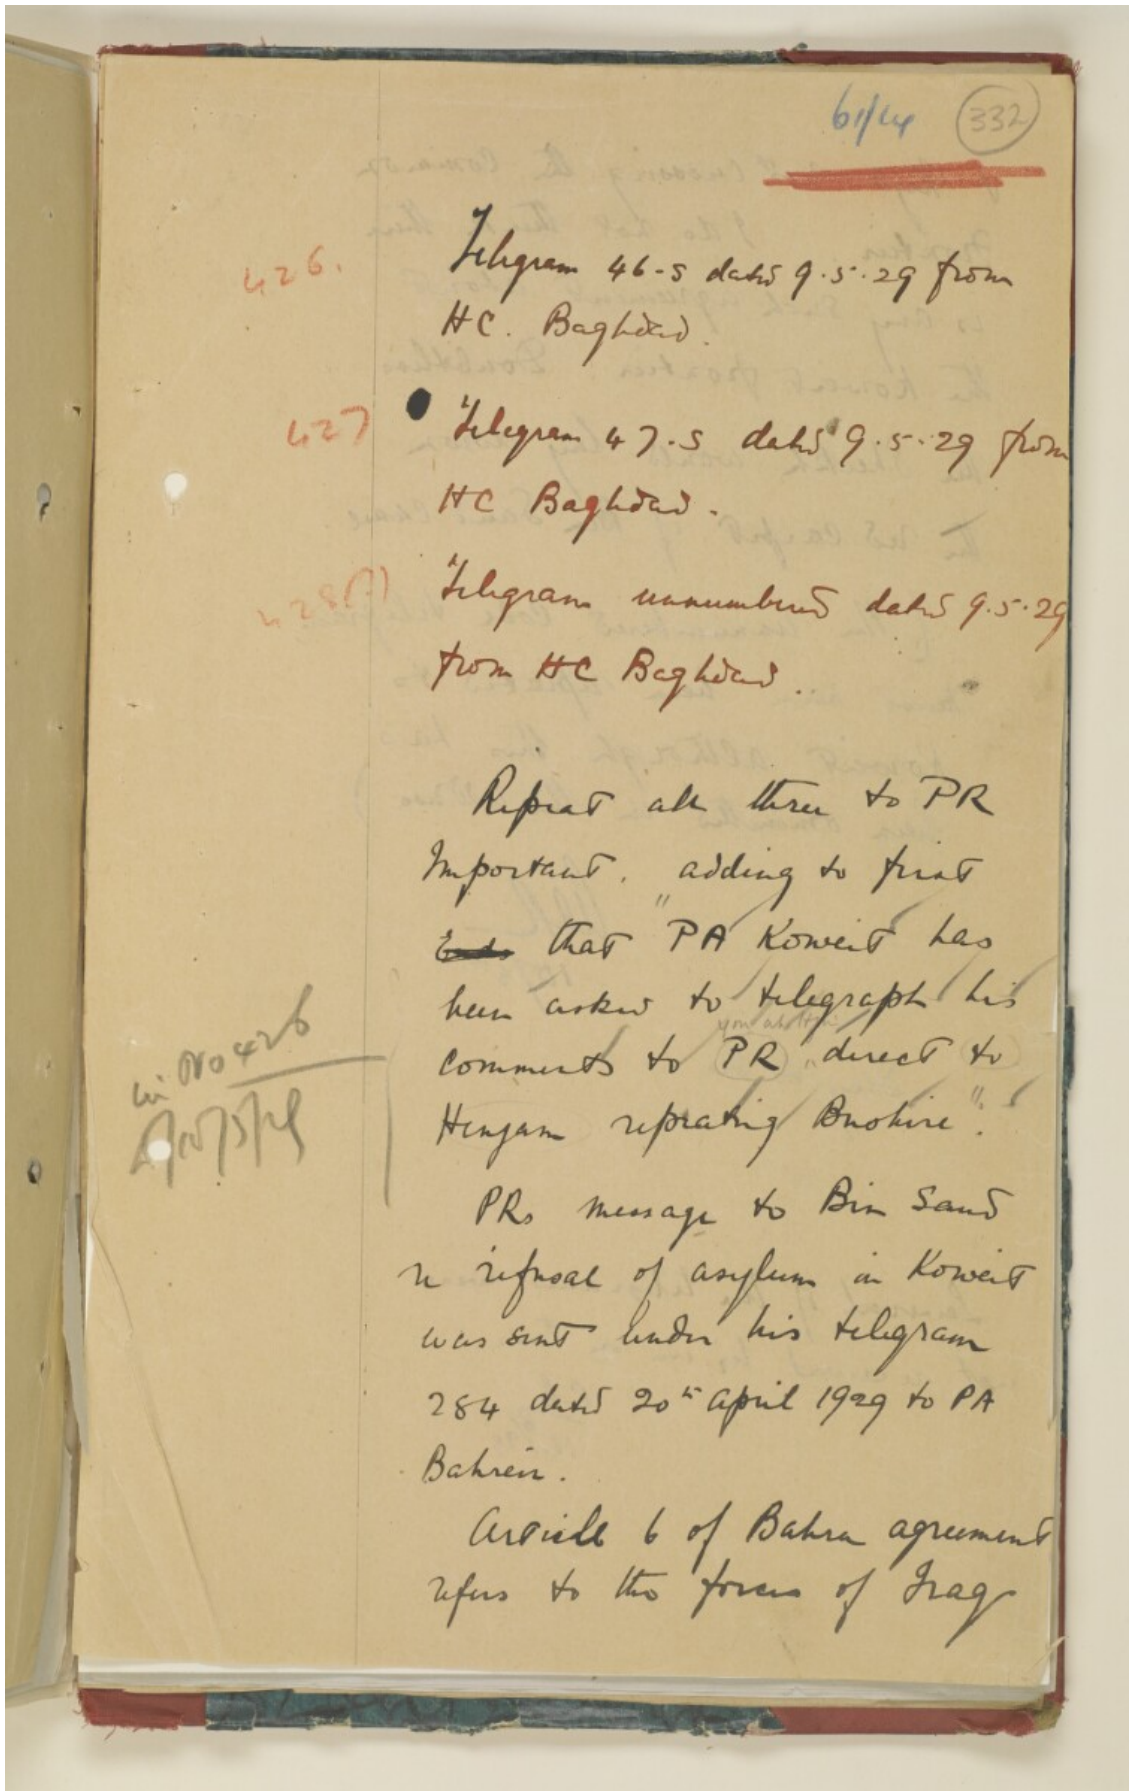 61/14 332
426. Telegram 46-S dated 9.5.29 from
HC. Baghdad.
427 Telegram 47-S dated 9.5.29 from
HC Baghdad.
428(?) Telegram unnumbered dated 9.5.29
from HC Baghdad.
Repeat all three to PR
Important. adding to first
Ends that "PA Koweit has
been asked to telegraph his
you at
comments to PR direct to
in No 426
Henjam repeating Bushire".
PRs message to Bin Saud
re refusal of asylum in Koweit
was sent under his telegram
284 dated 20th April 1929 to PA
Bahrein.
Article 6 of Bahra agreement
refers to the forces of Iraq